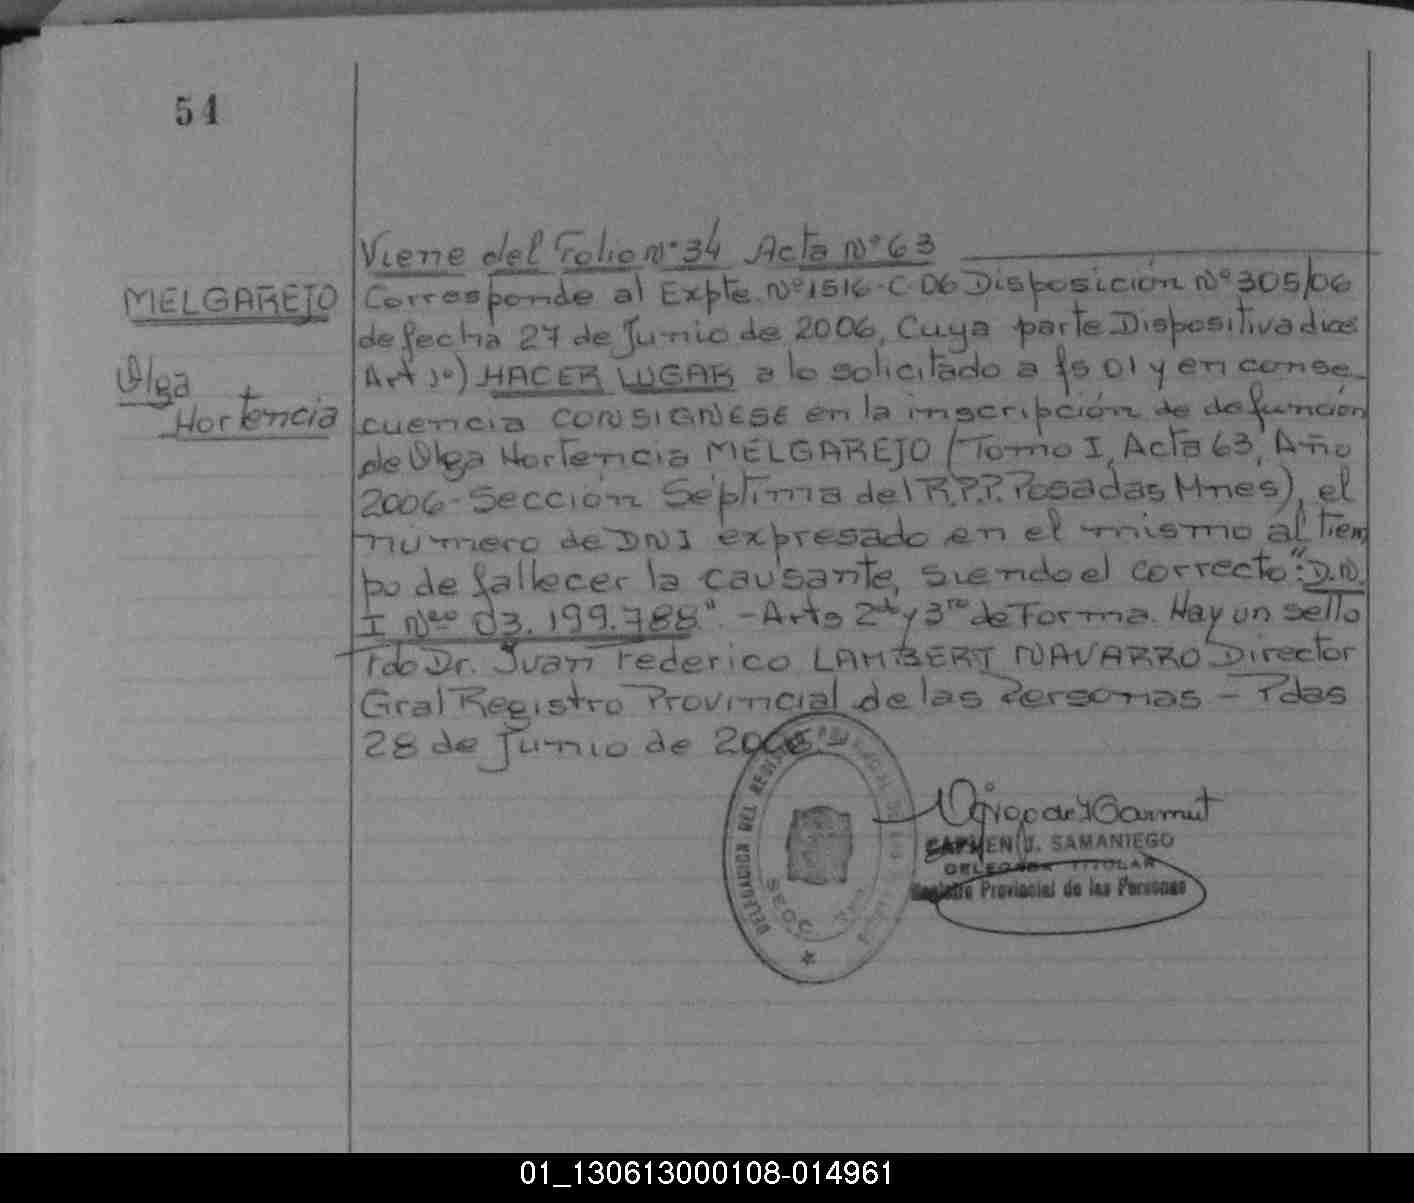 54
Viene del Folio Nº 34 Acta Nº 63
MELGAREJO
Olga
Hortencia
Corresponde al Expte. Nº 1516-C-06 Disposición Nº 305/06
de fecha 27 de Junio de 2006, Cuya parte Dispositiva dice
Art 1º) HACER LUGAR a lo solicitado a fs 01 y en conse
cuencia CONSIGNESE en la inscripción de defunción
de Olga Hortencia MELGAREJO (Tomo I, Acta 63, Año
2006-Sección Séptima del R.P.P. Posadas Mnes), el
número de DNI expresado en el mismo al tiem
po de fallecer la causante, siendo el correcto: "D.N.
I Nro 03.199.788" - Arts 2do y 3ro de Forma. Hay un sello
fdo Dr. Juan Federico LAMBERT NAVARRO Director
Gral Registro Provincial de las Personas - Pdas
28 de Junio de 2006.-
DELEGACION DEL
CARMEN J. SAMANIEGO
DELEGADA TITULAR
Registro Provincial de las Personas
01_130613000108-014961